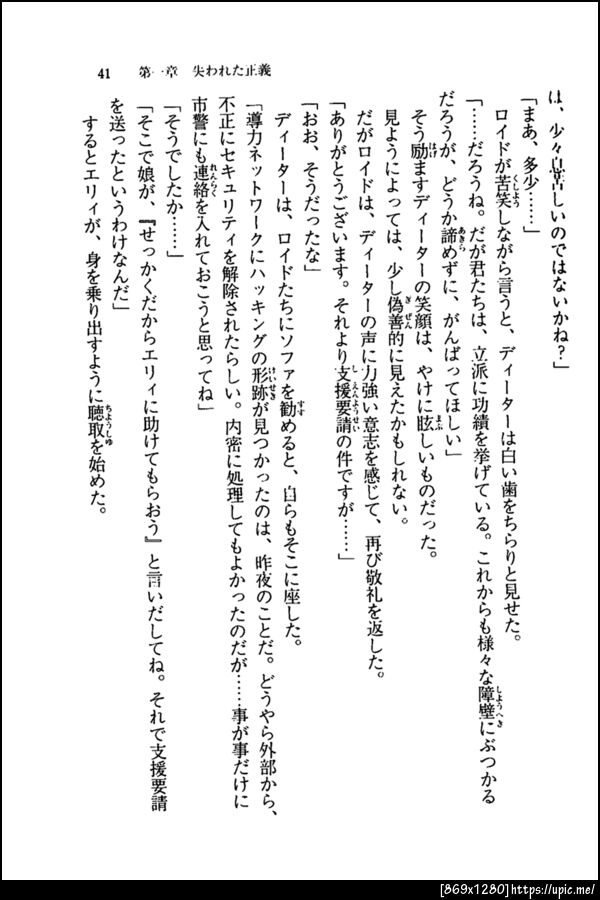 41　第一章　失われた正義
は、少々息苦しいのではないかね？」
「まあ、多少……」
ロイドが苦笑しながら言うと、ディーターは白い歯をちらりと見せた。
「……だろうね。だが君たちは、立派に功績を挙げている。これからも様々な障壁にぶつかる
だろうが、どうか諦めずに、がんばってほしい」
そう励ますディーターの笑顔は、やけに眩しいものだった。
見ようによっては、少し偽善的に見えたかもしれない。
だがロイドは、ディーターの声に力強い意志を感じて、再び敬礼を返した。
「ありがとうございます。それより支援要請の件ですが……」
「おお、そうだったな」
ディーターは、ロイドたちにソファを勧めると、自らもそこに座した。
「導力ネットワークにハッキングの形跡が見つかったのは、昨夜のことだ。どうやら外部から、
不正にセキュリティを解除されたらしい。内密に処理してもよかったのだが……事が事だけに
市警にも連絡を入れておこうと思ってね」
「そうでしたか……」
「そこで娘が、『せっかくだからエリィに助けてもらおう』と言いだしてね。それで支援要請
を送ったというわけなんだ」
するとエリィが、身を乗り出すように聴取を始めた。
[869x1280]https://upic.me/